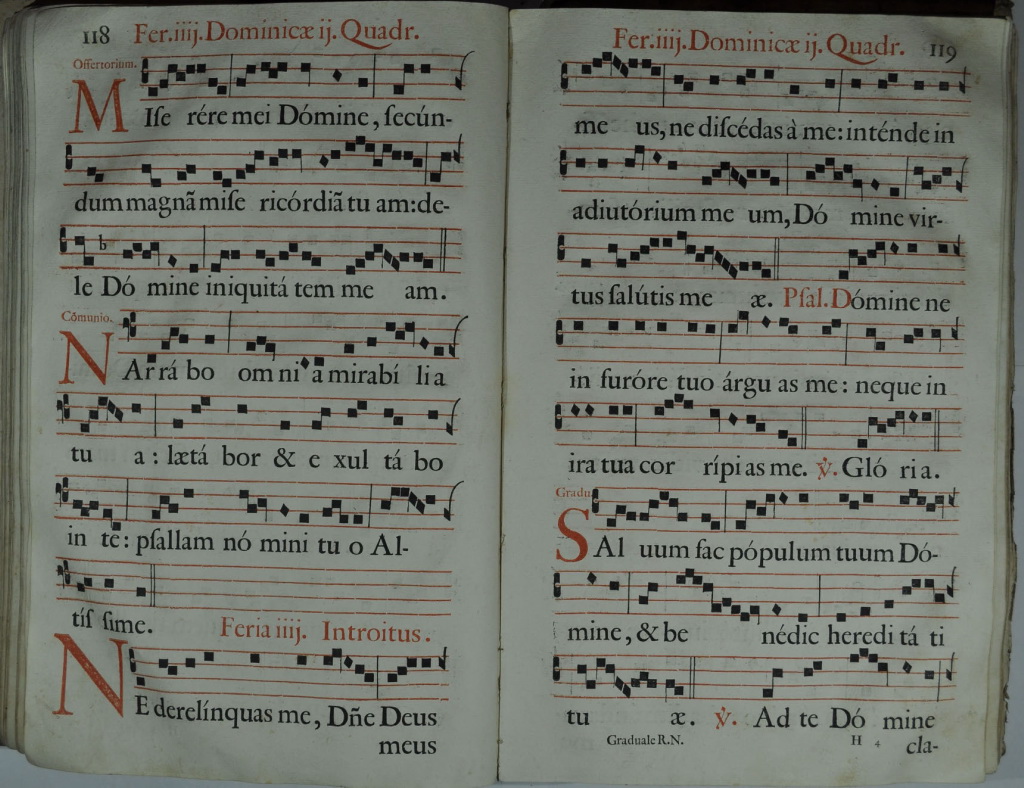 118 Fer.iiij.Dominicæ ij. Quadr.
Offertorium.
MIſe rére mei Dómine, ſecún-
dum magnã miſe ricórdiã tu am:de-
le Dó mine iniquitá tem me am.
Cõmunio.
NAr rá bo om ni a mirabí li a
tu a : lætá bor & e xul tá bo
in te: pſallam nó mini tu o Al-
tiſ ſime. Feria iiij. Introitus.
NE derelínquas me, Dñe Deus
meus
Fer.iiij.Dominicæ ij. Quadr. 119
me us, ne diſcédas à me: inténde in
adiutórium me um, Dó mine vir-
tus ſalútis me æ. Pſal. Dómine ne
in furóre tuo árgu as me: neque in
ira tua cor rípi as me. ℣. Gló ri a.
Gradu.
SAl uum fac pópulum tuum Dó-
mine, & be nédic heredi tá ti
tu æ. ℣. Ad te Dó mine
Graduale R.N. H 4 cla-